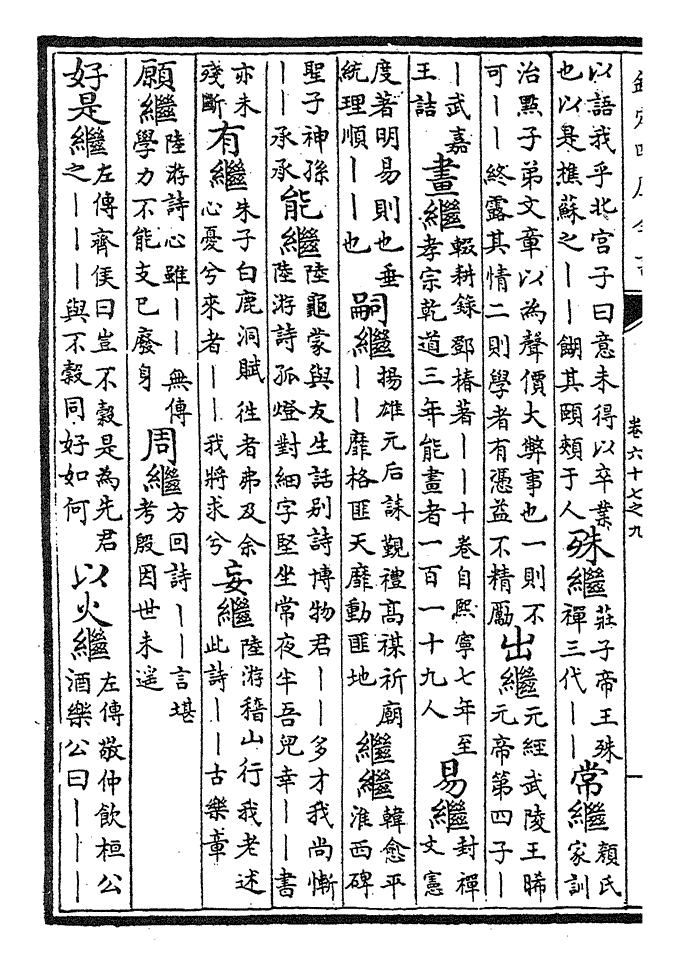 欽定四庫全書
卷六十七之九
以語我乎北宫子曰意未得以卒業
也以是樵蘇之——餬其頤頰于人
殊繼
莊子帝王殊
禪三代——
常繼
顔氏
家訓
治點子弟文章以為聲價大弊事也一則不
可——終露其情二則學者有憑益不精勵
出繼
元經武陵王晞
元帝第四子—
—武嘉
王詰
畫繼
輟耕錄鄧椿著——十卷自熙寧七年至
孝宗乾道三年能畫者一百一十九人
易繼
封禪
文憲
度著明易則也垂
統理順——也
嗣繼
揚雄元后誄覲禮高禖祈廟
——靡格匪天靡動匪地
繼繼
韓愈平
淮西碑
聖子神孫
——承承
能繼
陸龜蒙與友生話别詩博物君——多才我尚慚
陸游詩孤燈對細字堅坐常夜半吾兒幸——書
亦未
殘斷
有繼
朱子白鹿洞賦徃者弗及余
心憂兮來者——我將求兮
妄繼
陸游稽山行我老述
此詩——古樂章
願繼
陸游詩心雖——無傳
學力不能支已廢身
周繼
方回詩——言堪
考殷因世未遥
好是繼
左傳齊侯曰豈不榖是為先君
之———與不榖同好如何
以火繼
左傳敬仲飲桓公
酒樂公曰———